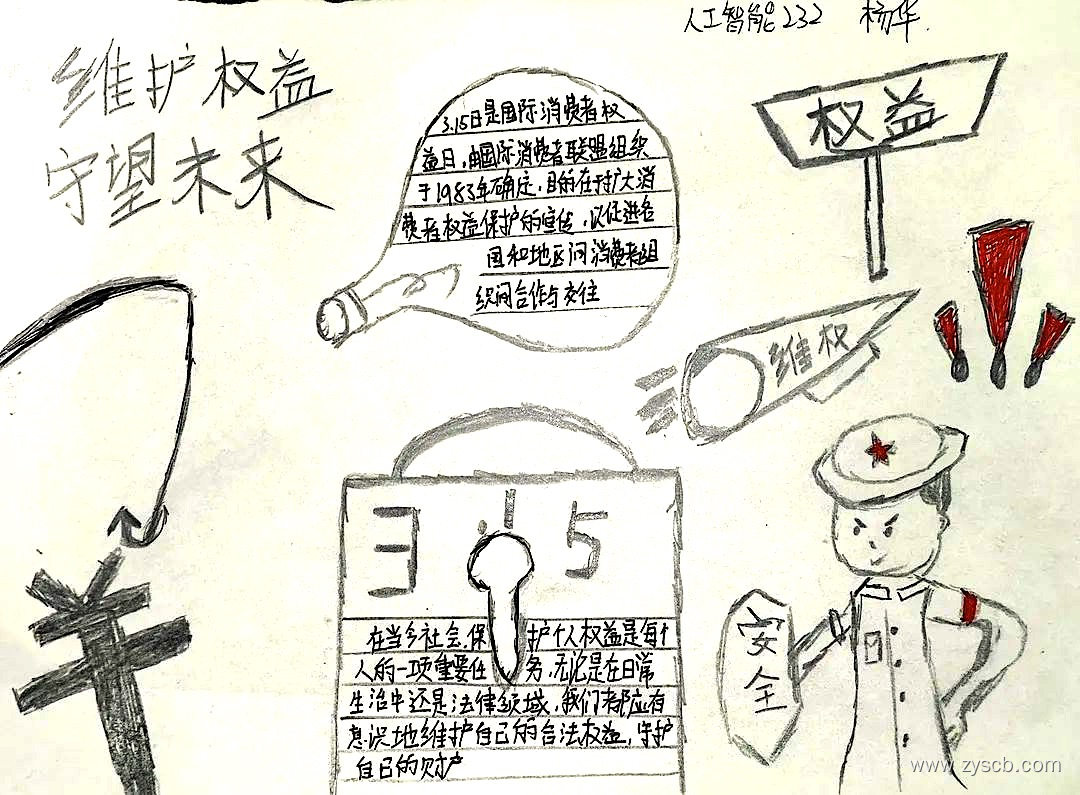 人工智能232 杨华.
维护权益
守望未来
3.15日是国际消费者权
益日,由国际消费者联盟组织
于1983年确定,目的在于扩大消
费者权益保护的宣传,以促进各
国和地区间消费者组
织间合作与交往
权益
维权
3.15
在当今社会,保护个人权益是每个
人的一项重要任务,无论是在日常
生活中还是法律领域,我们都应有
意识地维护自己的合法权益,守护
自己的财产
安全
www.zyscb.com